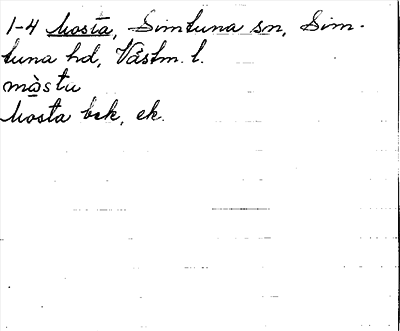 1-4 Mosta, Simtuna sn, Sim-
tuna hd, Västm. l.
mòstu
Mosta bsk, ek.